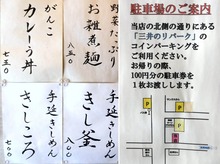 野菜たっぷり
お雑煮麺
八五〇
がんこ
カレーう丼
七五〇
手延きしめん
きし釜
八〇〇
手延きしめん
きしころ
七〇〇
駐車場のご案内
当店の北側の通りにある
「三井のリパーク」の
コインパーキングを
ご利用ください。
お帰りの際、
100円分の駐車券を
1枚お渡しします。
P
P
P